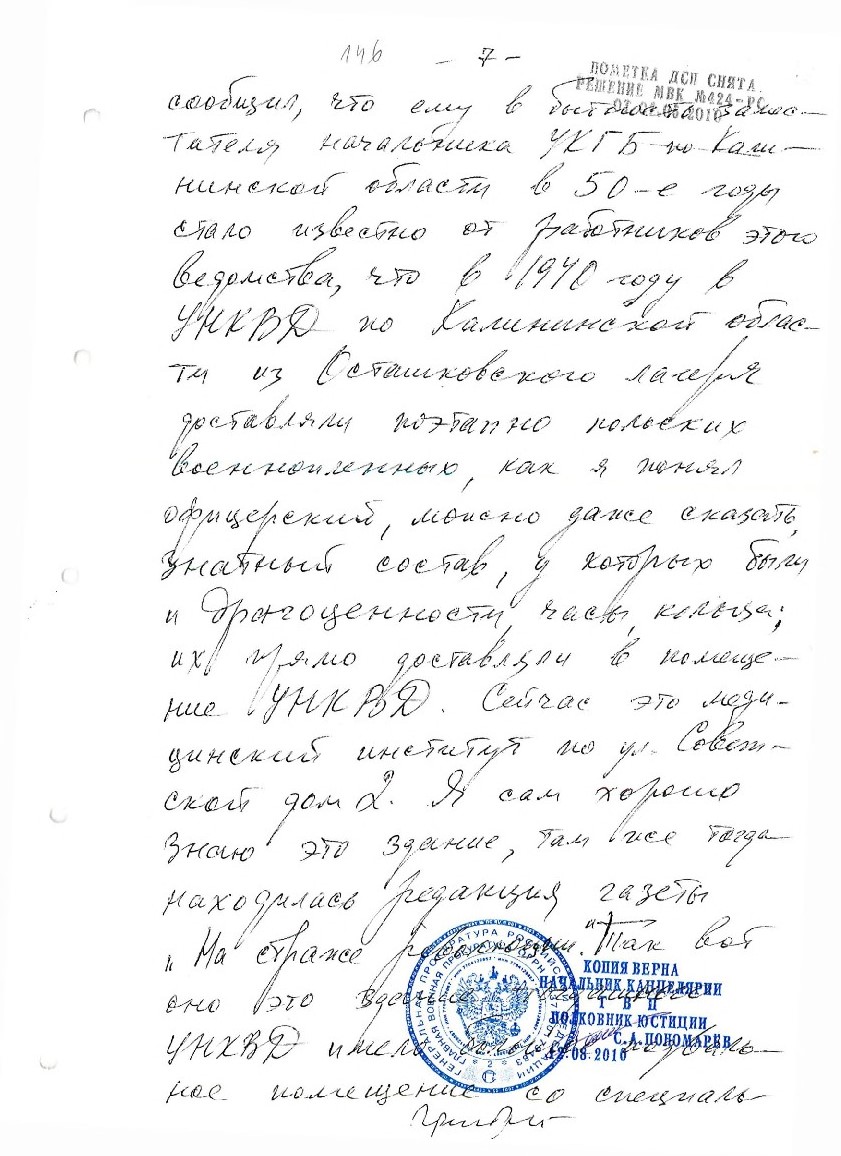 146 - 7 -
ПОМЕТКА ДСП СНЯТА.
РЕШЕНИЕ МВК №424-РС
сообщил, что ему в бытность замес-
тителя начальника УКГБ по Кали-
нинской области в 50-е годы
стало известно от работников этого
ведомства, что в 1940 году в
УНКВД по Калининской облас-
ти из Осташковского лагеря
доставляли поэтапно польских
военнопленных, как я понял
офицерский, можно даже сказать,
знатный состав, у которых были
и драгоценности, часы, кольца;
их прямо доставляли в помеще-
ние УНКВД. Сейчас это меди-
цинский институт по ул. Совет-
ской дом 2. Я сам хорошо
знаю это здание, там же тогда
находилась редакция газеты
„На страже революции." Так вот
оно это здание
УНКВД имело
ное помещение со специаль-
КОПИЯ ВЕРНА
НАЧАЛЬНИК КАНЦЕЛЯРИИ
Г В П
ПОЛКОВНИК ЮСТИЦИИ
С.А. ПОНОМАРЕВ
08.2010
ГЕНЕРАЛЬНАЯ ПРОКУРАТУРА РОССИЙСКОЙ ФЕДЕРАЦИИ
ГЛАВНАЯ ВОЕННАЯ ПРОКУРАТУРА